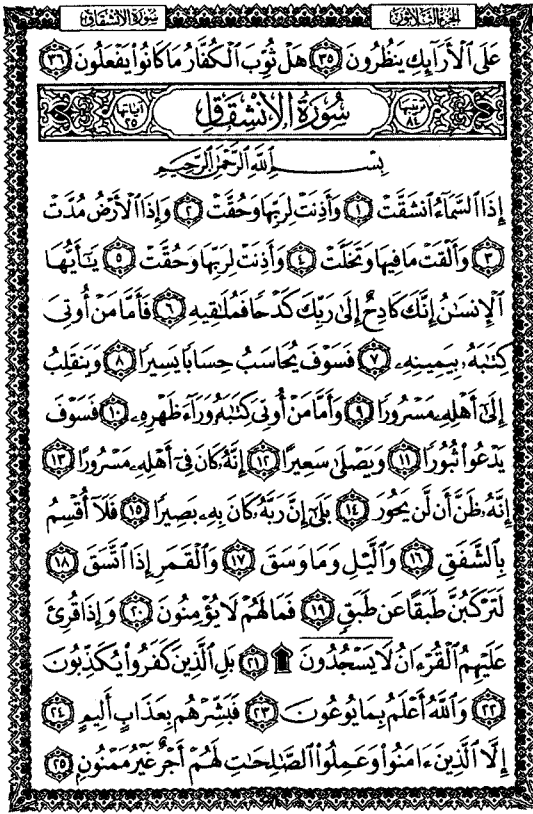 سورة الانشقاق الجزء الثلاثون
عَلَى ٱلْأَرَآئِكِ يَنظُرُونَ ٣٥ هَلْ ثُوِّبَ ٱلْكُفَّارُ مَا كَانُوا۟ يَفْعَلُونَ ٣٦
ترتيبها ٨٤ سُورَةُ الِانْشِقَاقِ آياتها ٢٥
بِسْمِ ٱللَّهِ ٱلرَّحْمَٰنِ ٱلرَّحِيمِ
إِذَا ٱلسَّمَآءُ ٱنشَقَّتْ ١ وَأَذِنَتْ لِرَبِّهَا وَحُقَّتْ ٢ وَإِذَا ٱلْأَرْضُ مُدَّتْ
٣ وَأَلْقَتْ مَا فِيهَا وَتَخَلَّتْ ٤ وَأَذِنَتْ لِرَبِّهَا وَحُقَّتْ ٥ يَٰٓأَيُّهَا
ٱلْإِنسَٰنُ إِنَّكَ كَادِحٌ إِلَىٰ رَبِّكَ كَدْحًا فَمُلَٰقِيهِ ٦ فَأَمَّا مَنْ أُوتِىَ
كِتَٰبَهُۥ بِيَمِينِهِۦ ٧ فَسَوْفَ يُحَاسَبُ حِسَابًا يَسِيرًا ٨ وَيَنقَلِبُ
إِلَىٰٓ أَهْلِهِۦ مَسْرُورًا ٩ وَأَمَّا مَنْ أُوتِىَ كِتَٰبَهُۥ وَرَآءَ ظَهْرِهِۦ ١٠ فَسَوْفَ
يَدْعُوا۟ ثُبُورًا ١١ وَيَصْلَىٰ سَعِيرًا ١٢ إِنَّهُۥ كَانَ فِىٓ أَهْلِهِۦ مَسْرُورًا ١٣
إِنَّهُۥ ظَنَّ أَن لَّن يَحُورَ ١٤ بَلَىٰٓ إِنَّ رَبَّهُۥ كَانَ بِهِۦ بَصِيرًا ١٥ فَلَآ أُقْسِمُ
بِٱلشَّفَقِ ١٦ وَٱلَّيْلِ وَمَا وَسَقَ ١٧ وَٱلْقَمَرِ إِذَا ٱتَّسَقَ ١٨
لَتَرْكَبُنَّ طَبَقًا عَن طَبَقٍ ١٩ فَمَا لَهُمْ لَا يُؤْمِنُونَ ٢٠ وَإِذَا قُرِئَ
عَلَيْهِمُ ٱلْقُرْءَانُ لَا يَسْجُدُونَ ۩ ٢١ بَلِ ٱلَّذِينَ كَفَرُوا۟ يُكَذِّبُونَ
٢٢ وَٱللَّهُ أَعْلَمُ بِمَا يُوعُونَ ٢٣ فَبَشِّرْهُم بِعَذَابٍ أَلِيمٍ ٢٤
إِلَّا ٱلَّذِينَ ءَامَنُوا۟ وَعَمِلُوا۟ ٱلصَّٰلِحَٰتِ لَهُمْ أَجْرٌ غَيْرُ مَمْنُونٍۭ ٢٥